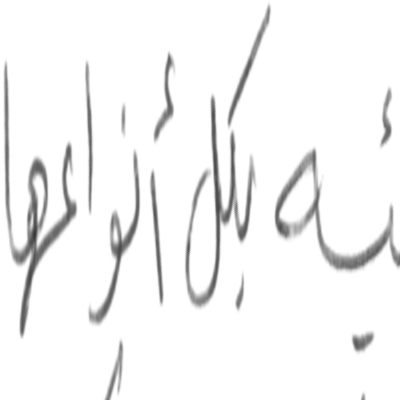 ئيه بكل أنواعها